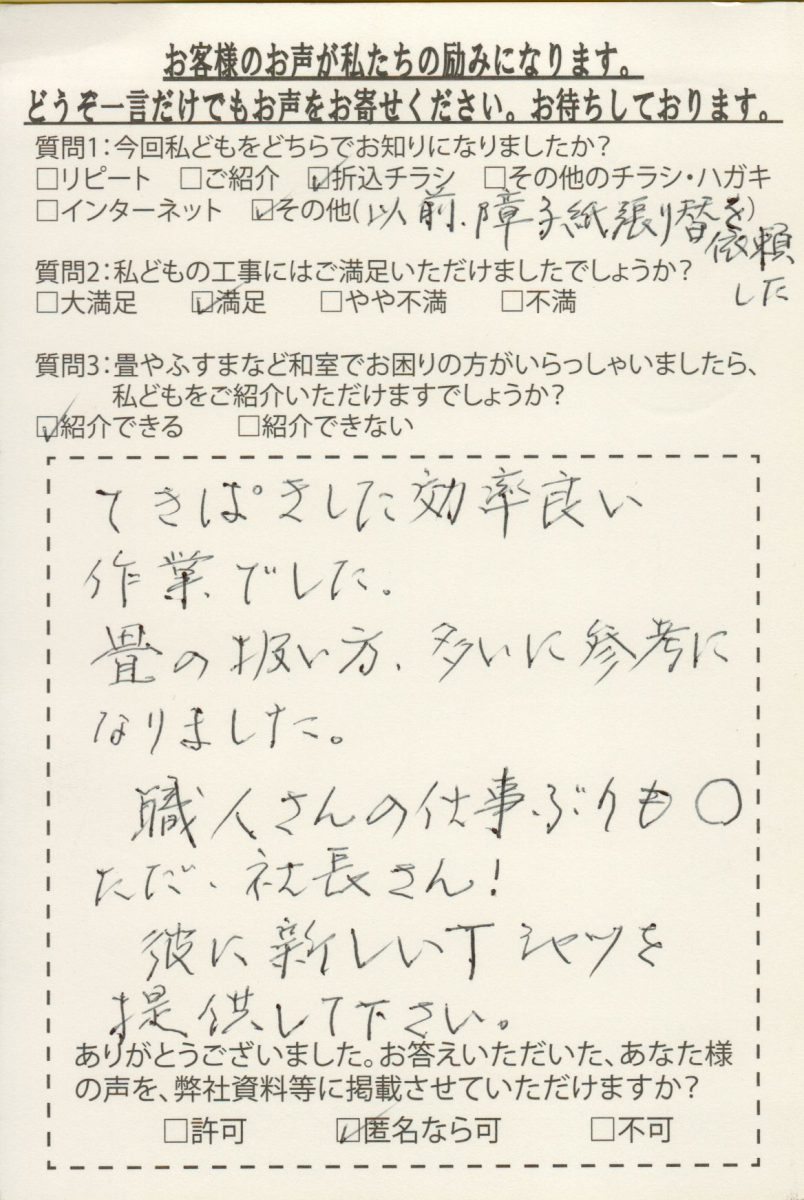 お客様のお声が私たちの励みになります。
どうぞ一言だけでもお声をお寄せください。お待ちしております。
質問1:今回私どもをどちらでお知りになりましたか?
□リピート □ご紹介 ☑折込チラシ □その他のチラシ・ハガキ
□インターネット ☑その他(以前、障子紙張り替を)
依頼
した
質問2:私どもの工事にはご満足いただけましたでしょうか?
□大満足 ☑満足 □やや不満 □不満
質問3:畳やふすまなど和室でお困りの方がいらっしゃいましたら、
私どもをご紹介いただけますでしょうか?
☑紹介できる □紹介できない
てきぱきした効率良い
作業でした。
畳の扱い方、多いに参考に
なりました。
職人さんの仕事ぶりも〇
ただ、社長さん!
彼に新しいTシャツを
提供して下さい。
ありがとうございました。お答えいただいた、あなた様
の声を、弊社資料等に掲載させていただけますか?
□許可 ☑匿名なら可 □不可